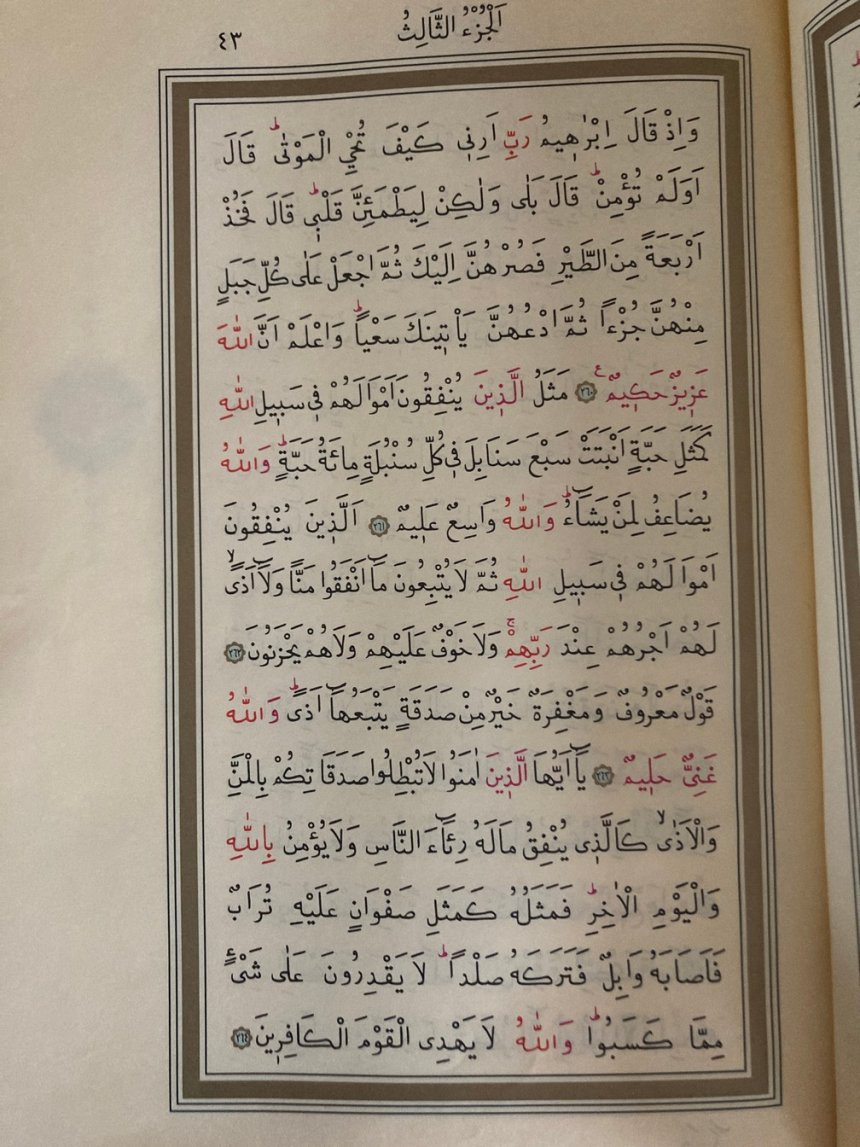 اَلْجُزْءُ الثَّالِثُ ٤٣
وَاِذْ قَالَ اِبْرٰه۪يمُ رَبِّ اَرِن۪ي كَيْفَ تُحْيِ الْمَوْتٰىۜ قَالَ
اَوَلَمْ تُؤْمِنْۜ قَالَ بَلٰى وَلٰكِنْ لِيَطْمَئِنَّ قَلْب۪يۜ قَالَ فَخُذْ
اَرْبَعَةً مِنَ الطَّيْرِ فَصُرْهُنَّ اِلَيْكَ ثُمَّ اجْعَلْ عَلٰى كُلِّ جَبَلٍ
مِنْهُنَّ جُزْءًا ثُمَّ ادْعُهُنَّ يَأْت۪ينَكَ سَعْيًاۜ وَاعْلَمْ اَنَّ اللّٰهَ
عَز۪يزٌ حَك۪يمٌ۟ ﴿٢٦٠﴾ مَثَلُ الَّذ۪ينَ يُنْفِقُونَ اَمْوَالَهُمْ ف۪ي سَب۪يلِ اللّٰهِ
كَمَثَلِ حَبَّةٍ اَنْبَتَتْ سَبْعَ سَنَابِلَ ف۪ي كُلِّ سُنْبُلَةٍ مِائَةُ حَبَّةٍۜ وَاللّٰهُ
يُضَاعِفُ لِمَنْ يَشَٓاءُۜ وَاللّٰهُ وَاسِعٌ عَل۪يمٌ ﴿٢٦١﴾ اَلَّذ۪ينَ يُنْفِقُونَ
اَمْوَالَهُمْ ف۪ي سَب۪يلِ اللّٰهِ ثُمَّ لَا يُتْبِعُونَ مَٓا اَنْفَقُوا مَنًّا وَلَٓا اَذًىۙ
لَهُمْ اَجْرُهُمْ عِنْدَ رَبِّهِمْۚ وَلَا خَوْفٌ عَلَيْهِمْ وَلَا هُمْ يَحْزَنُونَ ﴿٢٦٢﴾
قَوْلٌ مَعْرُوفٌ وَمَغْفِرَةٌ خَيْرٌ مِنْ صَدَقَةٍ يَتْبَعُهَٓا اَذًىۜ وَاللّٰهُ
غَنِيٌّ حَل۪يمٌ ﴿٢٦٣﴾ يَٓا اَيُّهَا الَّذ۪ينَ اٰمَنُوا لَا تُبْطِلُوا صَدَقَاتِكُمْ بِالْمَنِّ
وَالْاَذٰىۙ كَالَّذ۪ي يُنْفِقُ مَالَهُ رِئَٓاءَ النَّاسِ وَلَا يُؤْمِنُ بِاللّٰهِ
وَالْيَوْمِ الْاٰخِرِۜ فَمَثَلُهُ كَمَثَلِ صَفْوَانٍ عَلَيْهِ تُرَابٌ
فَاَصَابَهُ وَابِلٌ فَتَرَكَهُ صَلْدًاۜ لَا يَقْدِرُونَ عَلٰى شَيْءٍ
مِمَّا كَسَبُواۜ وَاللّٰهُ لَا يَهْدِي الْقَوْمَ الْكَافِر۪ينَ ﴿٢٦٤﴾